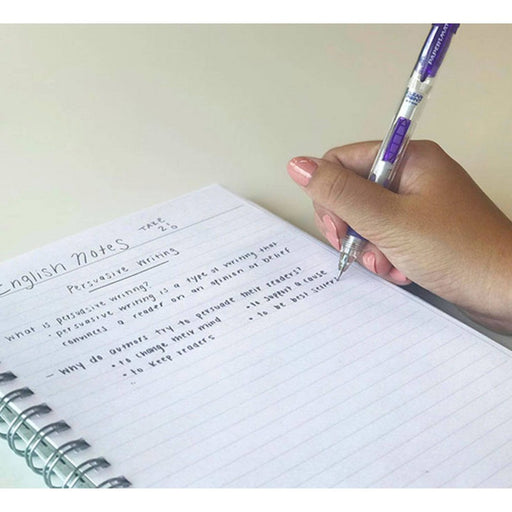 English Notes
TAKE
2.0
Persuasive Writing
What is persuasive writing?
• persuasive writing is a type of writing that
convinces a reader on an opinion or belief
- Why do authors try to persuade their readers?
• to change their mind
• to keep readers
• to support a cause
• to be best sellers
PAPERMATE